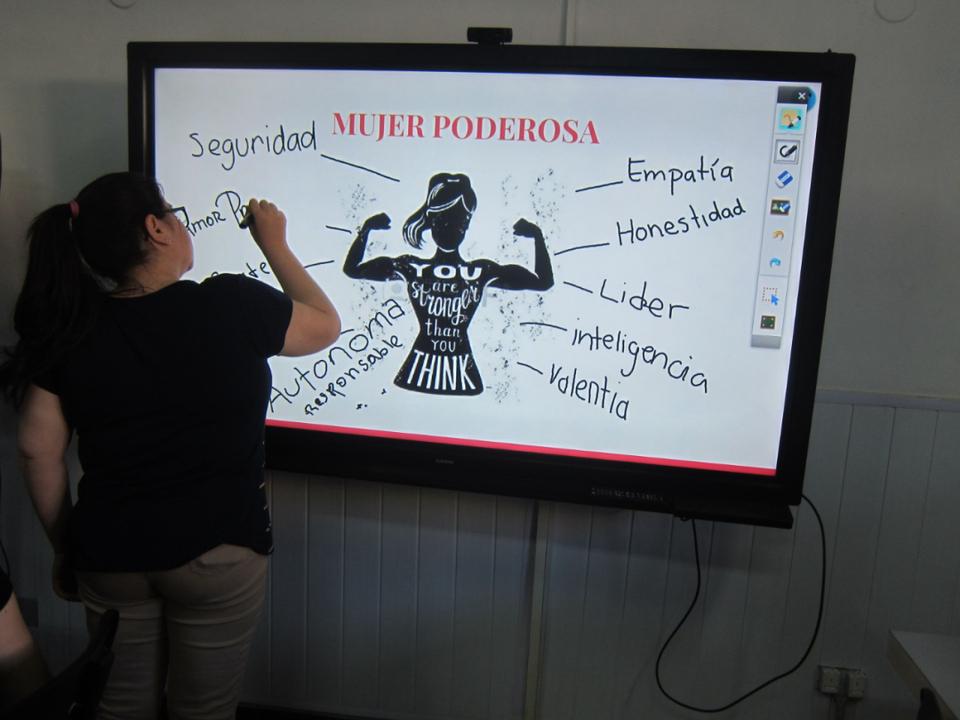 MUJER PODEROSA
Seguridad
Amor
Autonoma
responsable
YOU
are
stronger
than
YOU
THINK
Empatía
Honestidad
Lider
inteligencia
Valentia